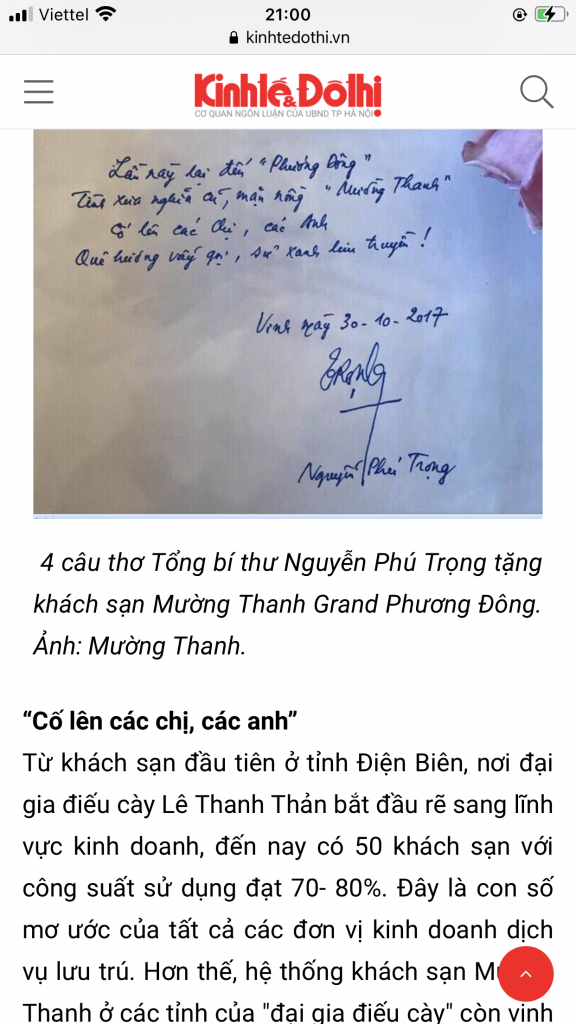 Viettel 21:00
kinhtedothi.vn
Kinhtế&Đôthị
CƠ QUAN NGÔN LUẬN CỦA UBND TP HÀ NỘI
Lần này lại đến "Phương Đông"
Tình xưa nghĩa cũ, mặn nồng "Mường Thanh"
Cố lên các Chị, các Anh
Quê hương vẫy gọi, sử xanh lưu truyền!
Vinh ngày 30-10-2017
TRỌNG
Nguyễn Phú Trọng
4 câu thơ Tổng bí thư Nguyễn Phú Trọng tặng
khách sạn Mường Thanh Grand Phương Đông.
Ảnh: Mường Thanh.
“Cố lên các chị, các anh”
Từ khách sạn đầu tiên ở tỉnh Điện Biên, nơi đại
gia điếu cày Lê Thanh Thản bắt đầu rẽ sang lĩnh
vực kinh doanh, đến nay có 50 khách sạn với
công suất sử dụng đạt 70- 80%. Đây là con số
mơ ước của tất cả các đơn vị kinh doanh dịch
vụ lưu trú. Hơn thế, hệ thống khách sạn
Thanh ở các tỉnh của "đại gia điếu cày" còn vinh